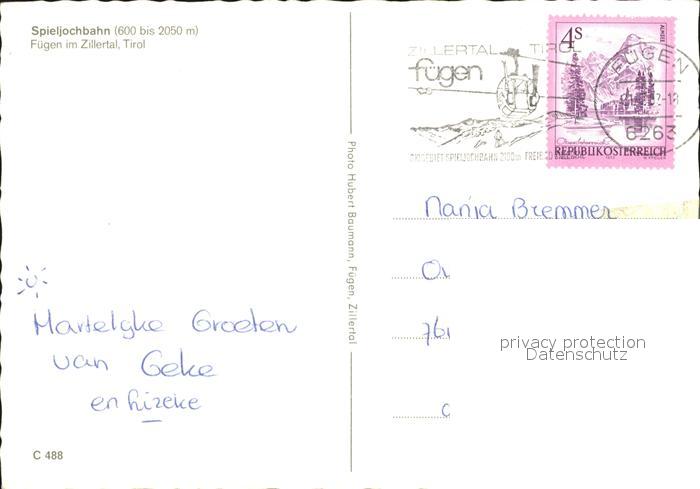 Spieljochbahn (600 bis 2050 m)
Fügen im Zillertal, Tirol
ZILLERTAL TIROL
fügen
SPIELJOCHBAHN 2100m
4S
ALMSEE
REPUBLIK ÖSTERREICH
FÜGEN
6263
Photo Hubert Baumann, Fügen, Zillertal
Manja Bremmer
761
privacy protection
Datenschutz
Hartelyke Groeten
van Geke
en Lizeke
C 488